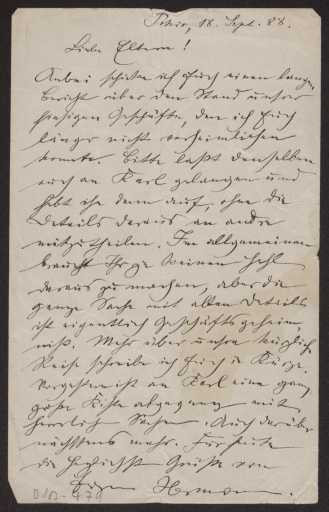 Tokio, 18. Sept. 88.
Liebe Eltern!
Anbei schicke ich Euch einen langen
Bericht über den Stand unserer
hiesigen Geschäfte, den ich Euch
länger nicht verheimlichen
konnte. Bitte laßt denselben
auch an Karl gelangen und
hebt ihn dann auf, ohne die
Details daraus an andre
mitzutheilen. Im allgemeinen
braucht Ihr ja keinen Hehl
daraus zu machen, aber die
ganze Sache mit allen Details
ist eigentlich Geschäftsgeheim-
niß. Mehr über unsere
Reise schreibe ich Euch in Kürze.
Vorgestern ist an Karl eine ganz
große Kiste abgegangen mit
herrlich Sachen. Auch darüber
nächstens mehr. Für heute
die herzlichsten Grüße von
Eurem Hermann.